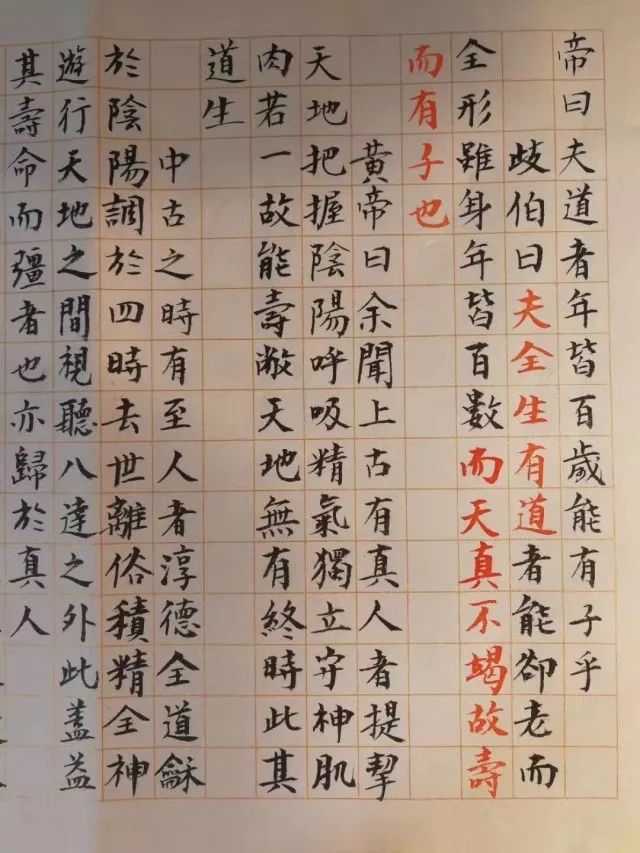 帝曰夫道者年皆百歲能有子乎
歧伯曰夫全生有道者能卻老而
全形雖身年皆百數而天真不竭故壽
而有子也
黃帝曰余聞上古有真人者提挈
天地把握陰陽呼吸精氣獨立守神肌
肉若一故能壽敝天地無有終時此其
道生
中古之時有至人者淳德全道龢
於陰陽調於四時去世離俗積精全神
遊行天地之間視聽八達之外此蓋益
其壽命而彊者也亦歸於真人